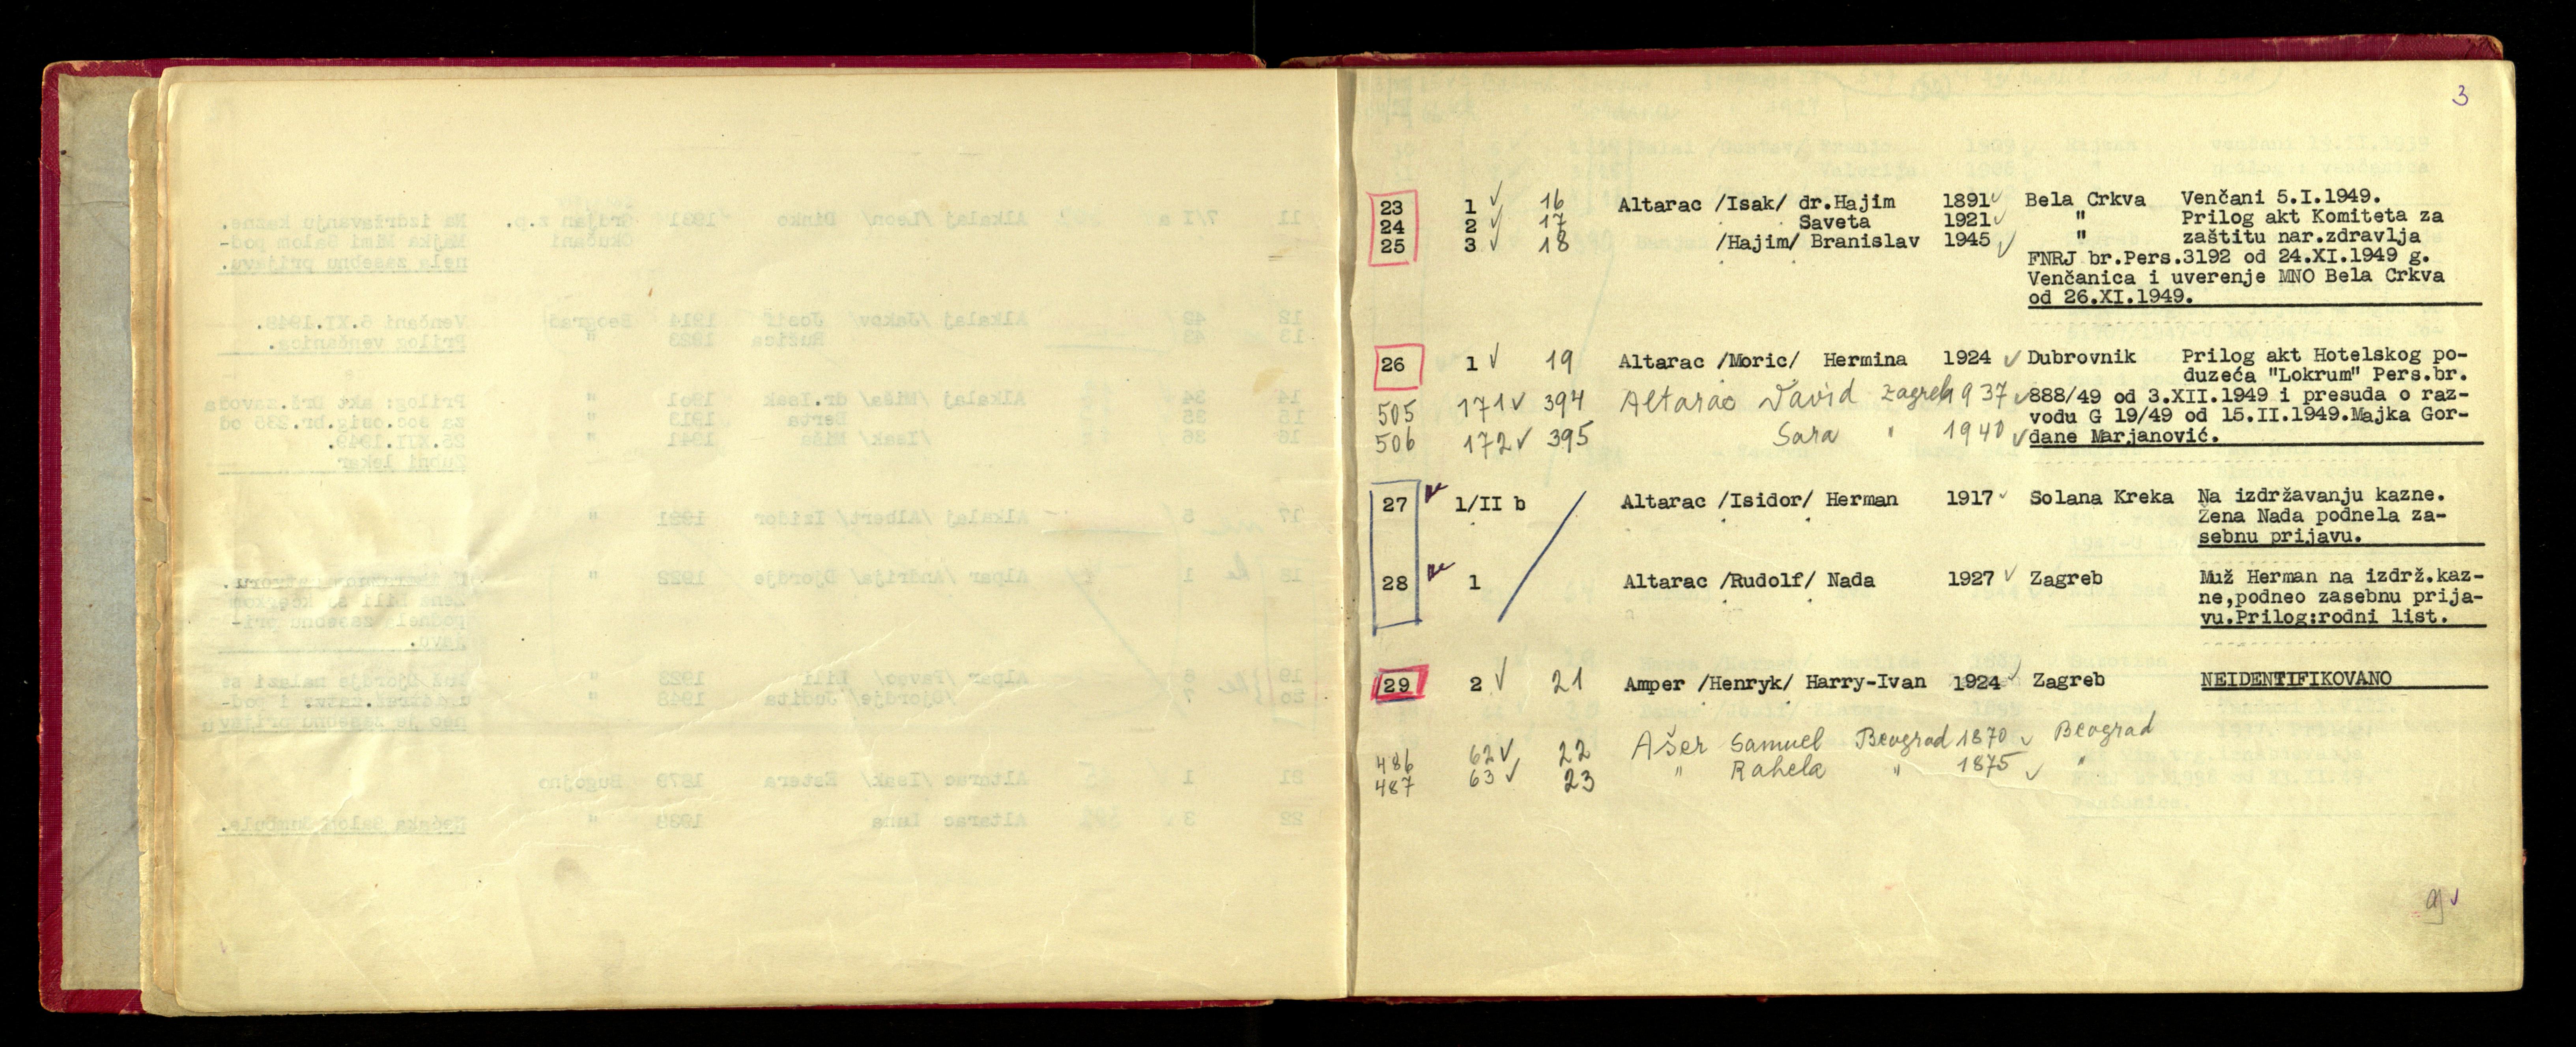 3
23 1 ✓ 16 Altarac /Isak/ dr.Hajim 1891 ✓ Bela Crkva Venčani 5.I.1949.
24 2 ✓ 17 Saveta 1921 ✓ " Prilog akt Komiteta za
25 3 ✓ 18 /Hajim/ Branislav 1945 ✓ " zaštitu nar.zdravlja
FNRJ br.Pers.3192 od 24.XI.1949 g.
Venčanica i uverenje MNO Bela Crkva
od 26.XI.1949.
26 1 ✓ 19 Altarac /Moric/ Hermina 1924 ✓ Dubrovnik Prilog akt Hotelskog po-
duzeća "Lokrum" Pers.br.
505 171 ✓ 394 Altarac David Zagreb 1937 ✓ 888/49 od 3.XII.1949 i presuda o raz-
vodu G 19/49 od 15.II.1949.Majka Gor-
506 172 ✓ 395 Sara " 1940 ✓ dane Marjanović.
27 1/II b Altarac /Isidor/ Herman 1917 ✓ Solana Kreka Na izdržavanju kazne.
Žena Nada podnela za-
sebnu prijavu.
28 1 Altarac /Rudolf/ Nada 1927 ✓ Zagreb Muž Herman na izdrž.kaz-
ne,podneo zasebnu prija-
vu.Prilog:rodni list.
29 2 ✓ 21 Amper /Henryk/ Harry-Ivan 1924 ✓ Zagreb NEIDENTIFIKOVANO
486 62 ✓ 22 Ašer Samuel Beograd 1870 ✓ Beograd
487 63 ✓ 23 " Rahela " 1875 ✓ "